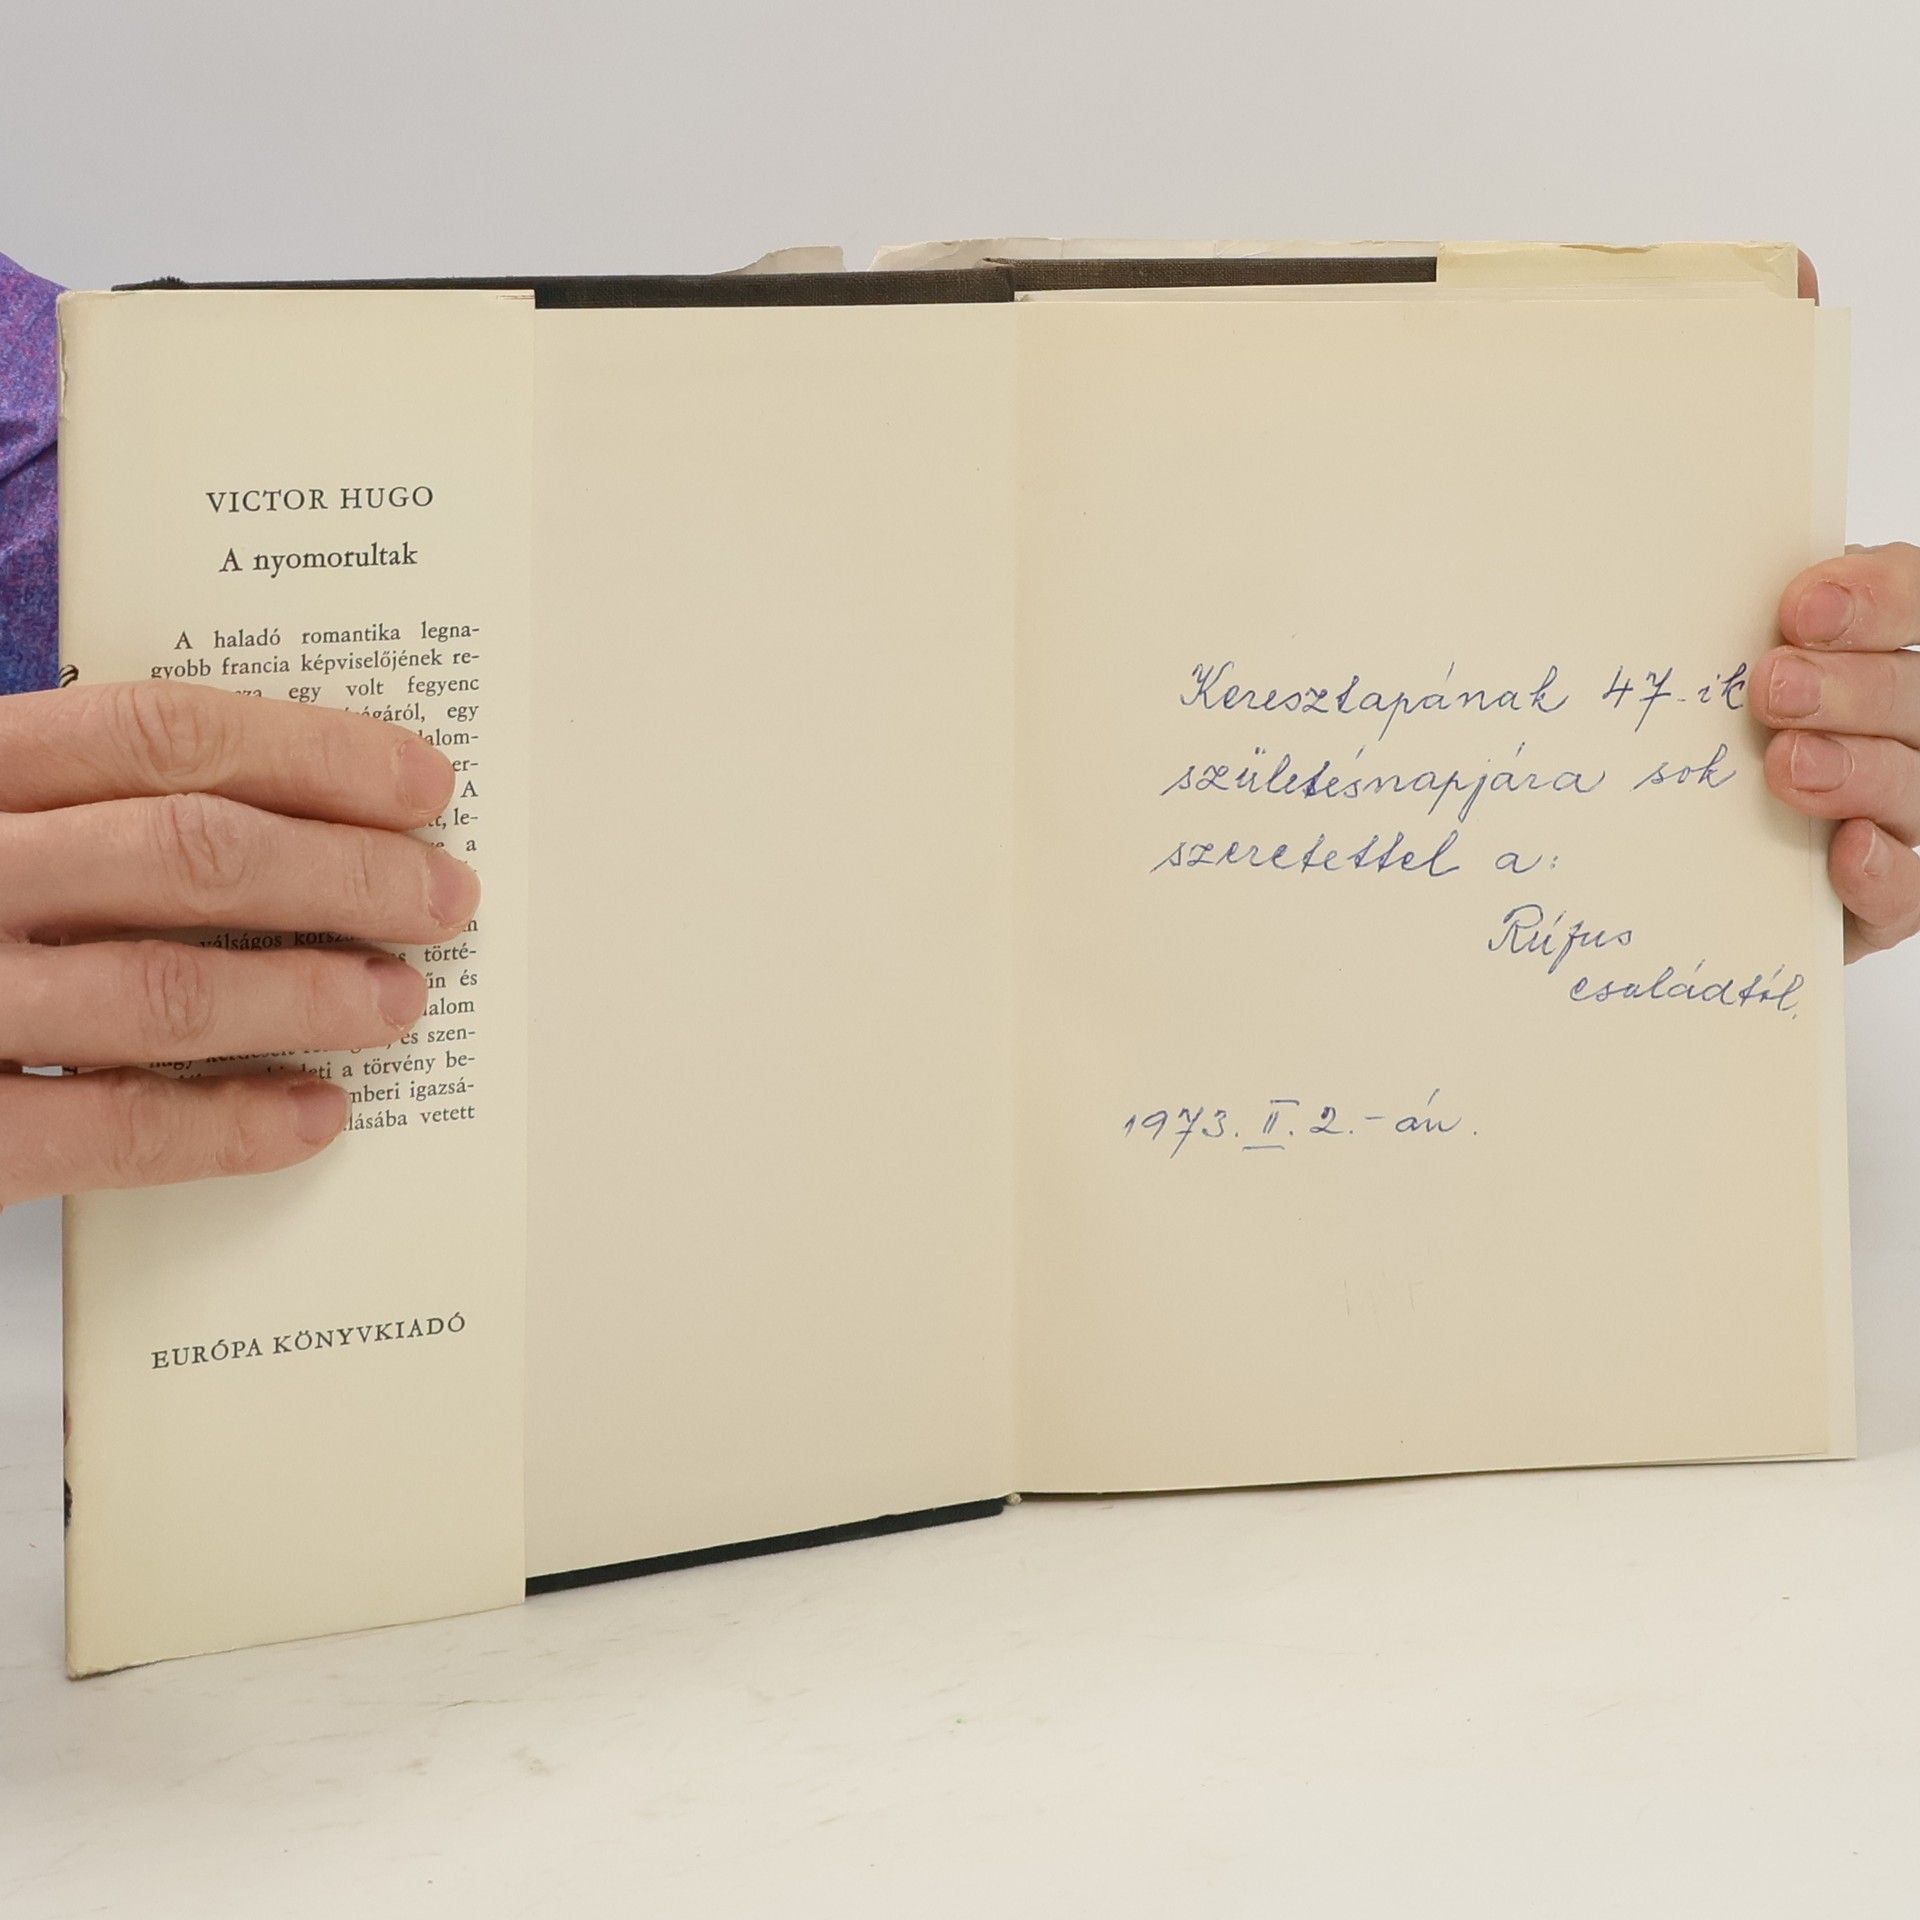 VICTOR HUGO
A nyomorultak
A haladó romantika legna-
gyobb francia képviselőjének re-
egy volt fegyenc
egy
A
le-
a
válságos
törté-
és
és szen-
nagy
a törvény be-
igazsá-
vetett
EURÓPA KÖNYVKIADÓ
Keresztapának 47-ik
születésnapjára sok
szeretettel a:
Rúfus
családtól.
1973. II. 2.-án.